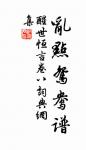 亂點鴛鴦譜
醒世恒言卷八詞典網
集